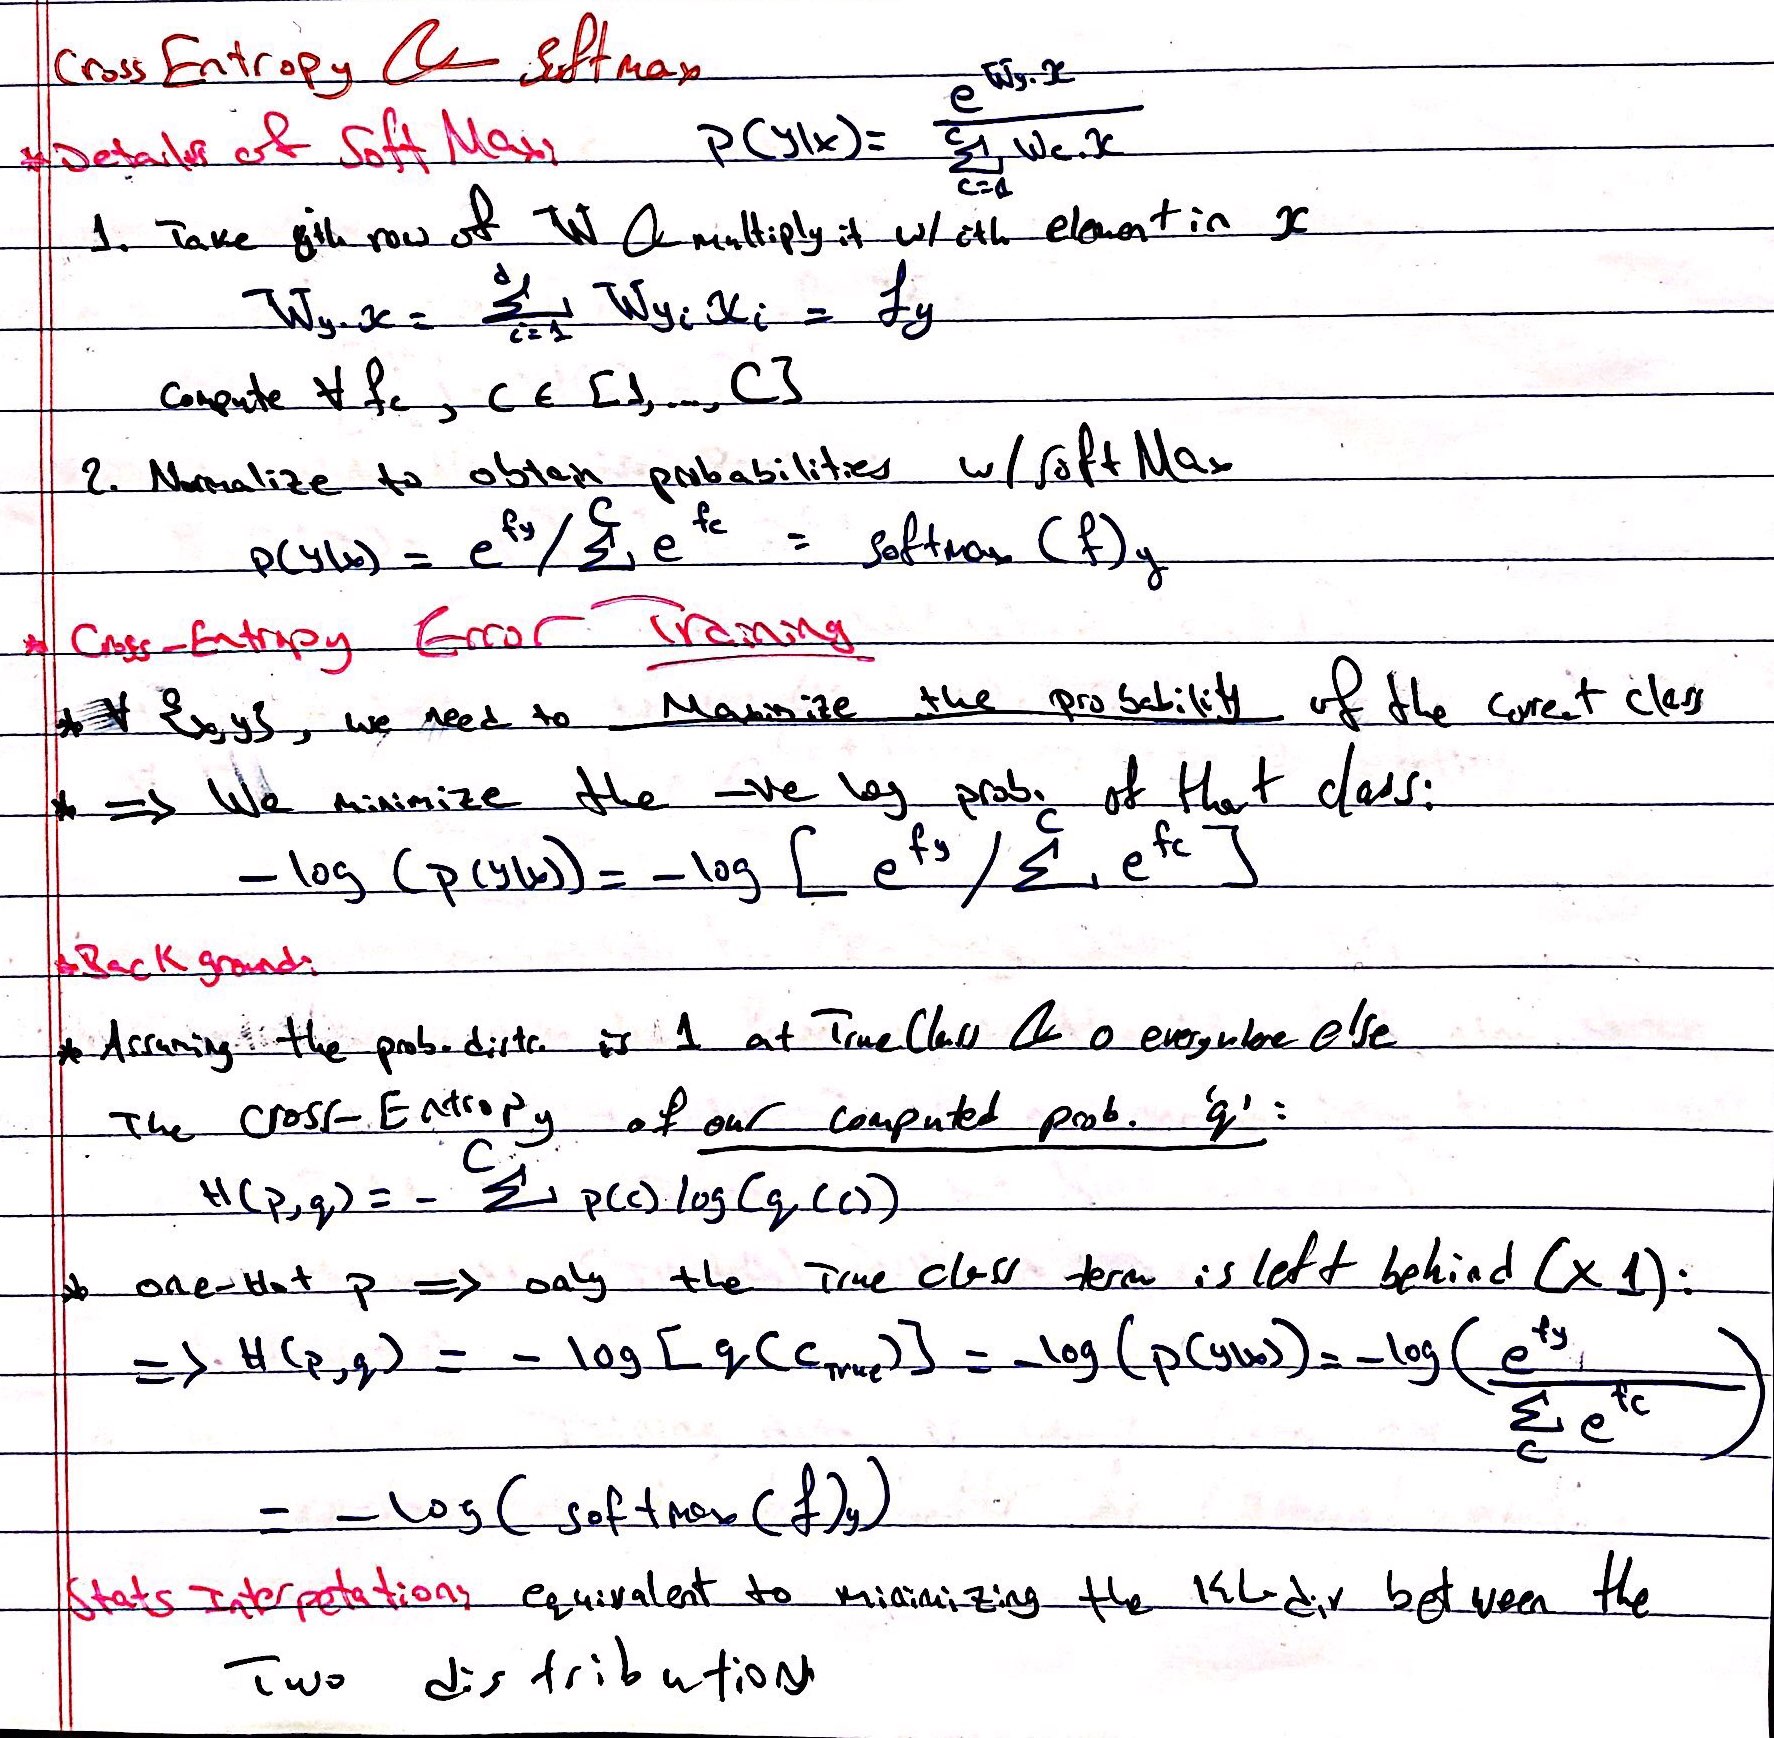 Cross Entropy & Softmax
* Details of Soft Max: p(y|x) = e^{Wy.x} / Σ_{c=1}^{C} Wc.x
1. Take yth row of W & multiply it w/ ith element in x
Wy.x = Σ_{i=1}^{d} Wyi xi = fy
Compute ∀ fc, c ∈ [1, ..., C]
2. Normalize to obtain probabilities w/ SoftMax
p(y|x) = e^{fy} / Σ^{C} e^{fc} = softmax (f)y
* Cross-Entropy Error Training
* ∀ {x,y}, we need to Maximize the probability of the correct class
* => We minimize the -ve log prob. of that class:
-log (p(y|x)) = -log [ e^{fy} / Σ^{C} e^{fc} ]
* Background:
* Assuming the prob. distr. is 1 at True Class & 0 everywhere else
The Cross-Entropy of our computed prob. 'q':
H(p,q) = - Σ^{C} p(c) log(q(c))
* one-Hot p => only the True class term is left behind (x 1):
=> H(p,q) = - log [ q(c_True) ] = -log (p(y|x)) = -log ( e^{fy} / Σ_{c} e^{fc} )
= -log ( softmax (f)y )
Stats Interpetation: equivalent to minimizing the KL-div between the
Two distributions